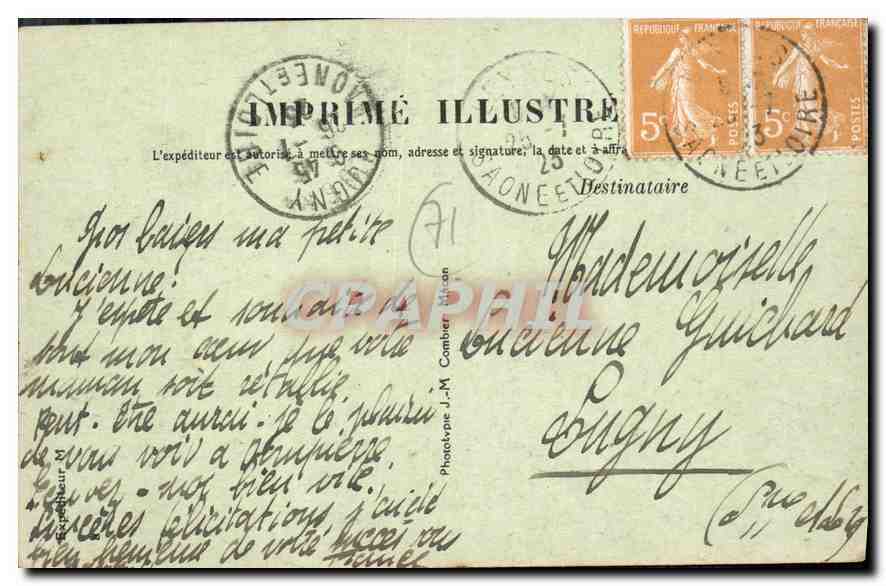 REPUBLIQUE FRANÇAISE
REPUBLIQUE FRANÇAISE
5c POSTES
5c POSTES
IMPRIMÉ ILLUSTRÉ
L'expéditeur est autorisé à mettre ses nom, adresse et signature, la date et à affra
Destinataire
SAONE ET LOIRE
SAONE ET LOIRE
LUGNY
SAONE ET LOIRE
25 -1
23
71
Gros baisers ma petite
Lucienne.
J'espère et souhaite de
tout mon cœur que votre
maman soit rétablie
Peut-être aurai-je le plaisir
de vous voir à
Ecrivez-moi bien vite.
Sincères félicitations j'ai été
bien heureuse de votre succès
Mademoiselle
Lucienne Guichard
Lugny
(Sne et L
Phototypie J.-M Combier Mâcon
Expéditeur M
CPAPHIL